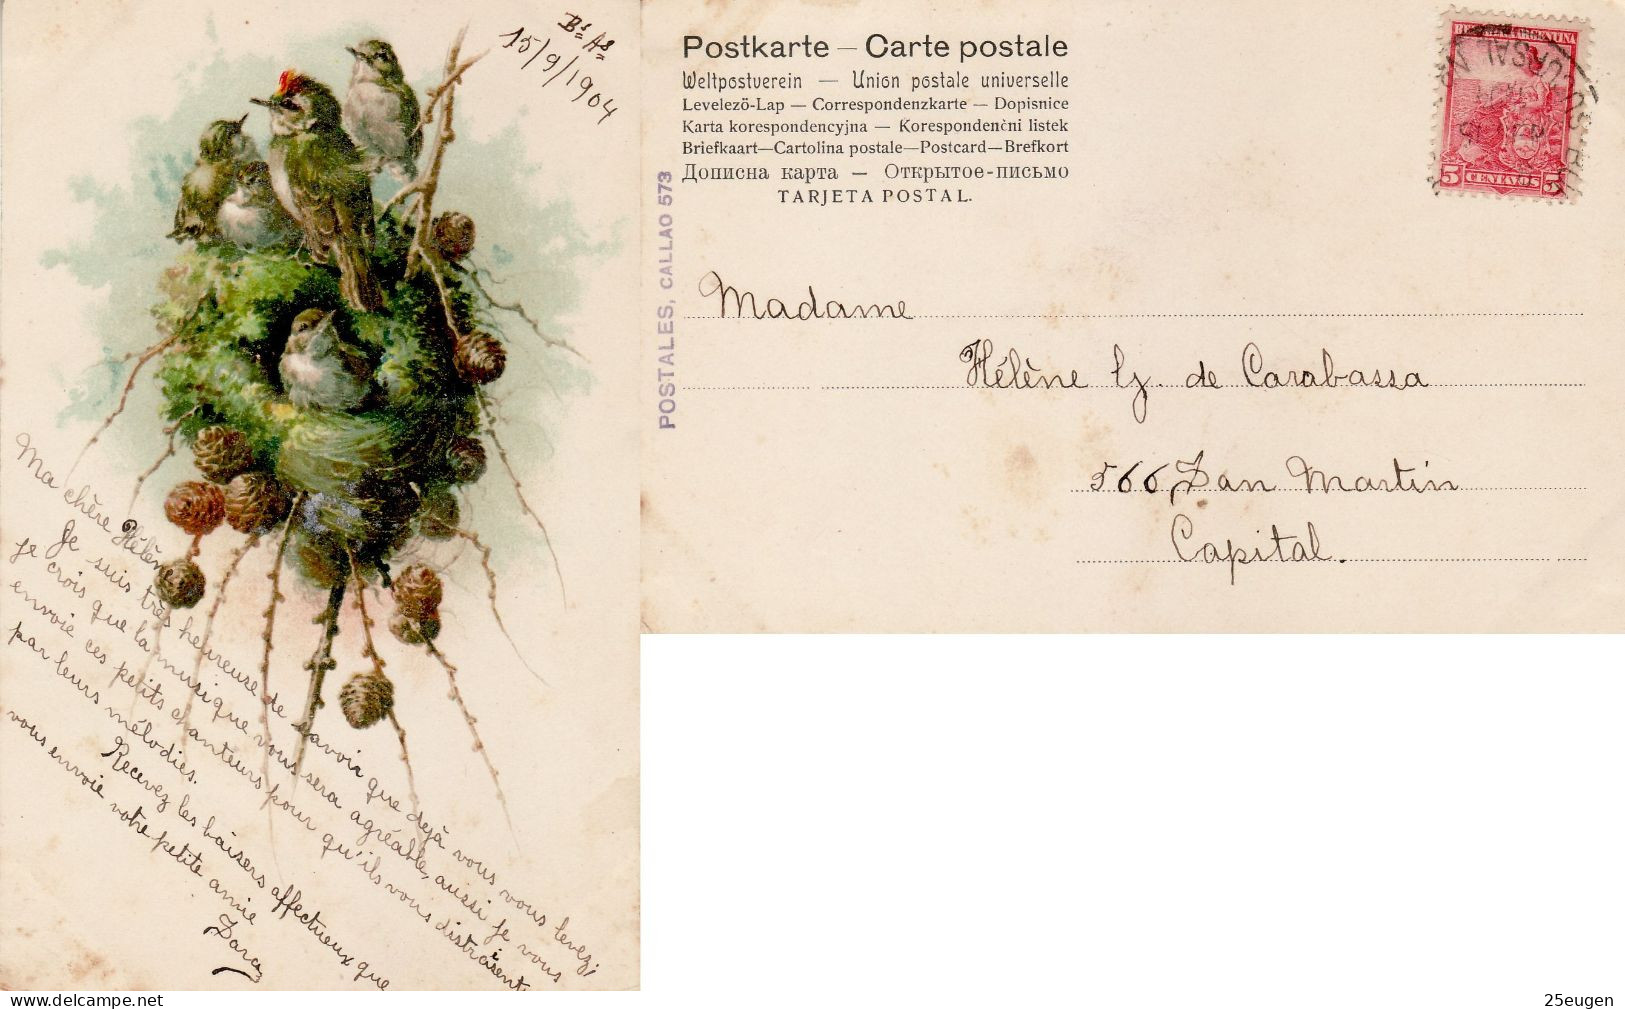 Bs As
15/9/1904
Ma chère Hélène
Je suis très heureuse de savoir que dejà vous vous levez;
je crois que la musique vous sera agréable, aussi je vous
envoie ces petits chanteurs pour qu'ils vous distraient
par leurs mélodies.
Recevez les baisers affectueux que
vous envoie votre petite amie
Sara
Postkarte – Carte postale
Weltpostverein — Union postale universelle
Levelezö-Lap — Correspondenzkarte — Dopisnice
Karta korespondencyjna — Korespondenčni listek
Briefkaart—Cartolina postale—Postcard—Brefkort
Дописна карта — Открытое-письмо
TARJETA POSTAL.
POSTALES, CALLAO 573
5 CENTAVOS 5
Madame
Hélène Ly. de Carabassa
566 San Martin
Capital.
www.delcampe.net
25eugen